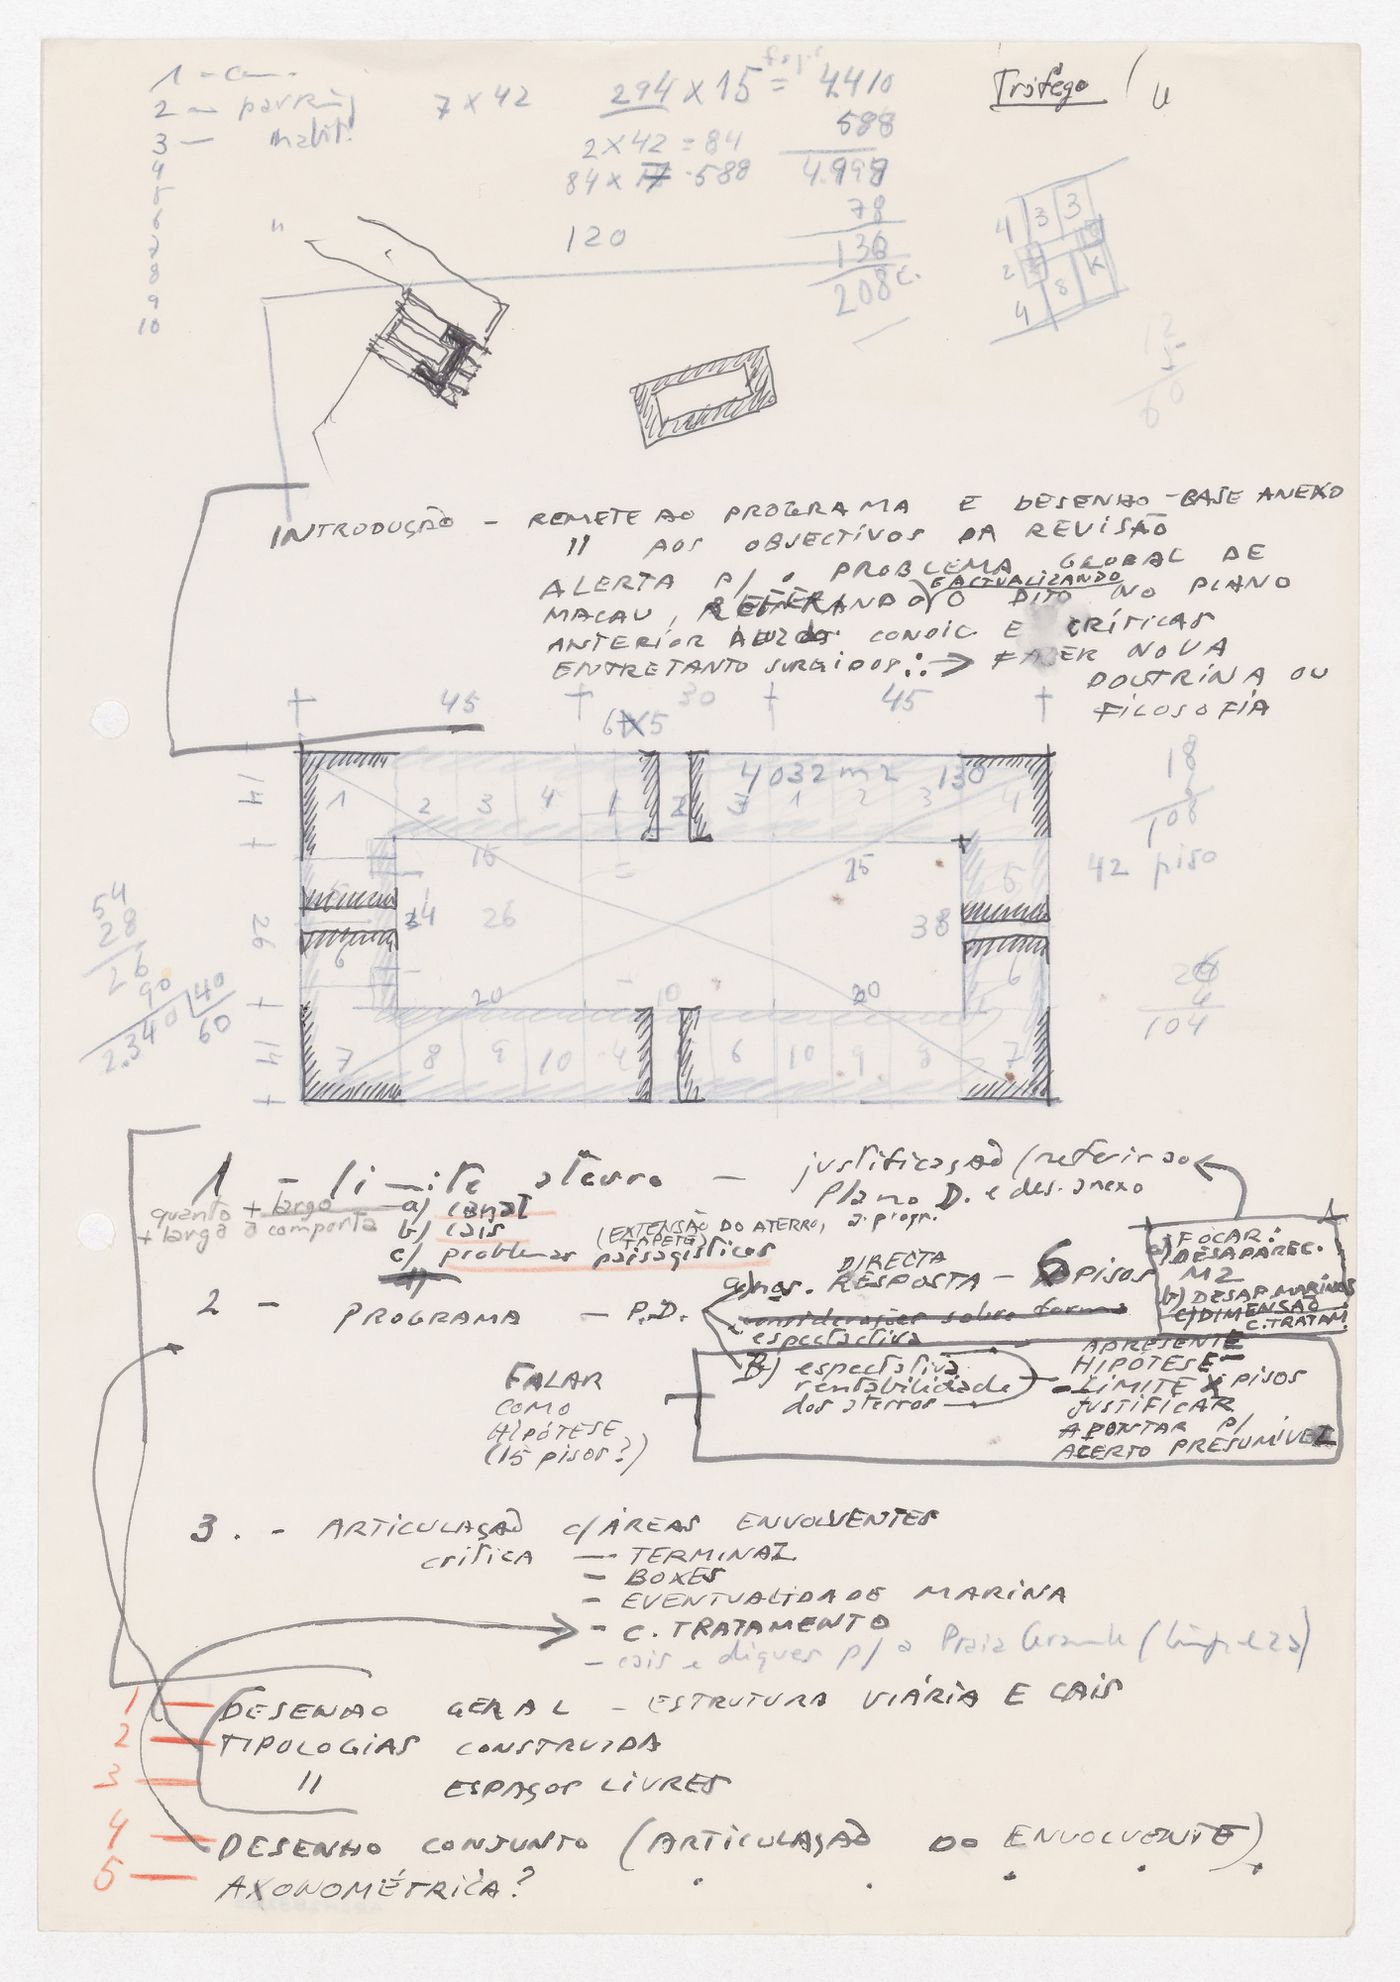 1 -
2 — parking
3 — habit.
4
5
6
7
8
9
10
"
7 x 42
294 x 15 = 4410
2 x 42 = 84
588
84 x 7 · 588
4.998
78
120
136
208 c.
Tráfego
4 3 3
2
8 K
4
12
5
60
INTRODUÇÃO - REMETE AO PROGRAMA E DESENHO-BASE ANEXO
" AOS OBJECTIVOS DA REVISÃO
ALERTA P/ o PROBLEMA GLOBAL DE
MACAU, REITERANDO (E ACTUALIZANDO) O DITO NO PLANO
ANTERIOR CONDIC. E CRÍTICAS
ENTRETANTO SURGIDOS: → FAZER NOVA
DOUTRINA OU
FILOSOFIA
45 30 45
14
4032 m2 130
1 2 3 4 1 2 3 1 2 3 4
15 15
5
34 26 38
26
6 6
20 10 20
14
7 8 9 10 4 6 10 9 8 7
18
108
42 piso
26
4
104
54
28
26
90
2.340
40
60
1 - limite aterro - justificação (referir ao
Plano D. e des. anexo
a progr.
quanto + largo
+ larga a comporta
a) canal
b) cais (EXTENSÃO DO ATERRO,
TAPETE)
c) problemas paisagísticos
FOCAR:
a) DESAPAREC.
M2
b) DESAP. MARINAS
c) DIMENSÃO
C. TRATAM.
2 - PROGRAMA - P.D.
DIRECTA
RESPOSTA - 6 PISOS
considerações sobre forma
espectactiva
B) espectativa
rentabilidade
dos aterros
APRESENTE
HIPÓTESE
- LIMITE X PISOS
JUSTIFICAR
APONTAR P/
ACERTO PRESUMÍVEL
FALAR
COMO
HIPÓTESE
(15 pisos?)
3. - ARTICULAÇÃO C/ ÁREAS ENVOLVENTES
CRÍTICA — TERMINAL
- BOXES
- EVENTUALIDADE MARINA
- C. TRATAMENTO
- cais e diques p/ a Praia Grande (limpeza)
1 — DESENHO GERAL - ESTRUTURA VIÁRIA E CAIS
2 — TIPOLOGIAS CONSTRUIDA
3 — " ESPAÇOS LIVRES
4 — DESENHO CONJUNTO (ARTICULAÇÃO DO ENVOLVENTE)
5 — AXONOMÉTRICA?